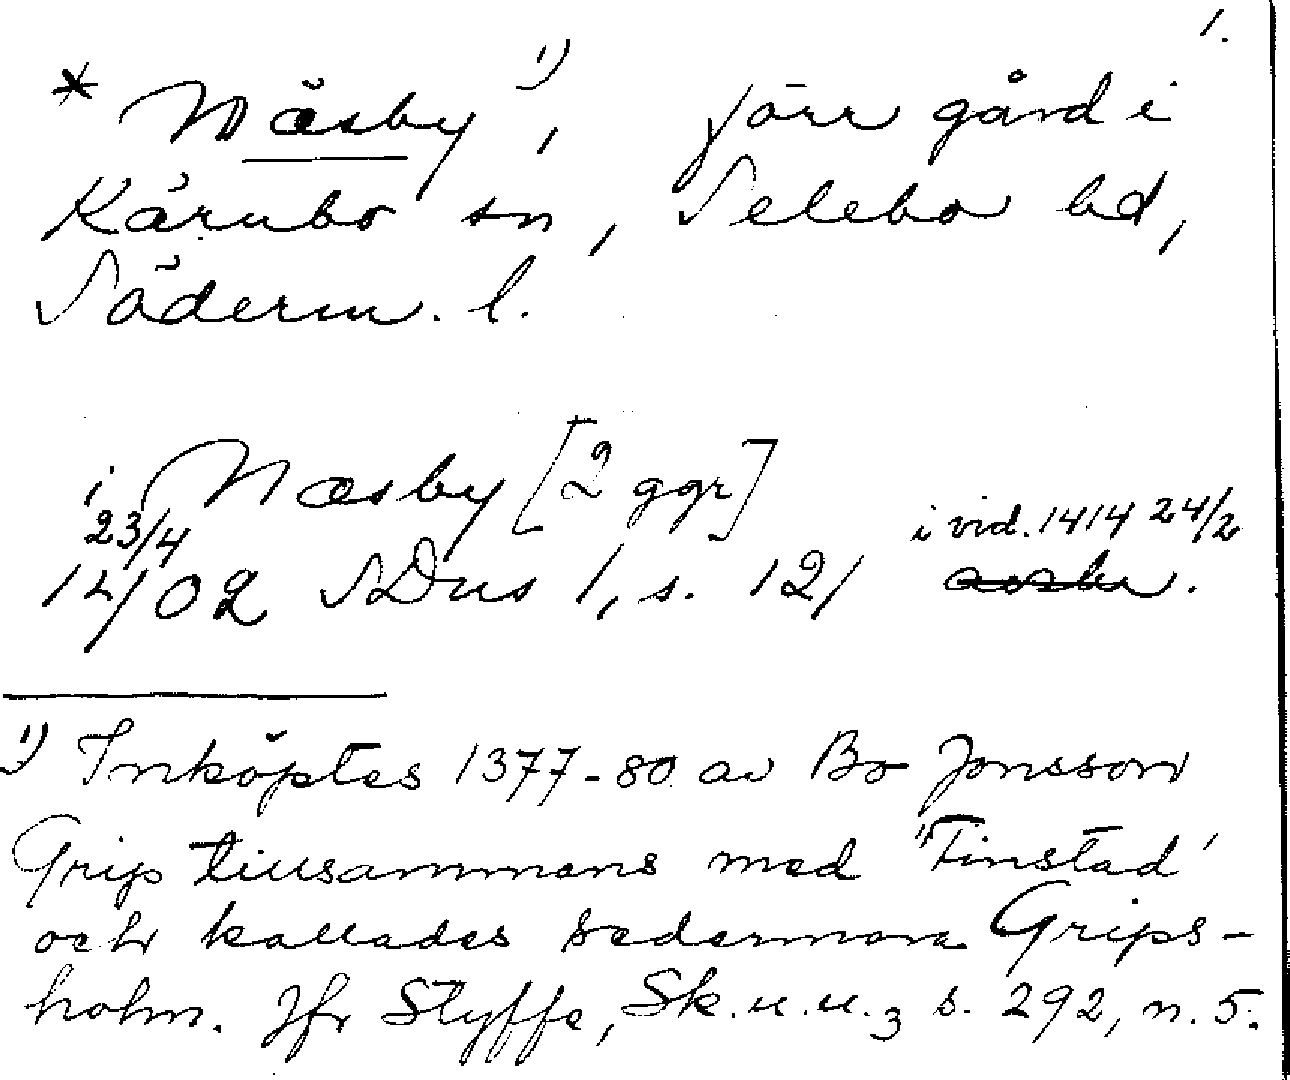 1.
* Näsby 1), förr gård i
Kärnbo sn, Selebo hd,
Söderm. l.
i Næsby [2 ggr]
23/4 i vid. 1414 24/2
14/02 SDns 1, s. 121
1) Inköptes 1377-80 av Bo Jonsson
Grip tillsammans med "Finstad'
och kallades sedermera Grips-
holm. Jfr Styffe, Sk. u. u. 3 s. 292, n. 5.